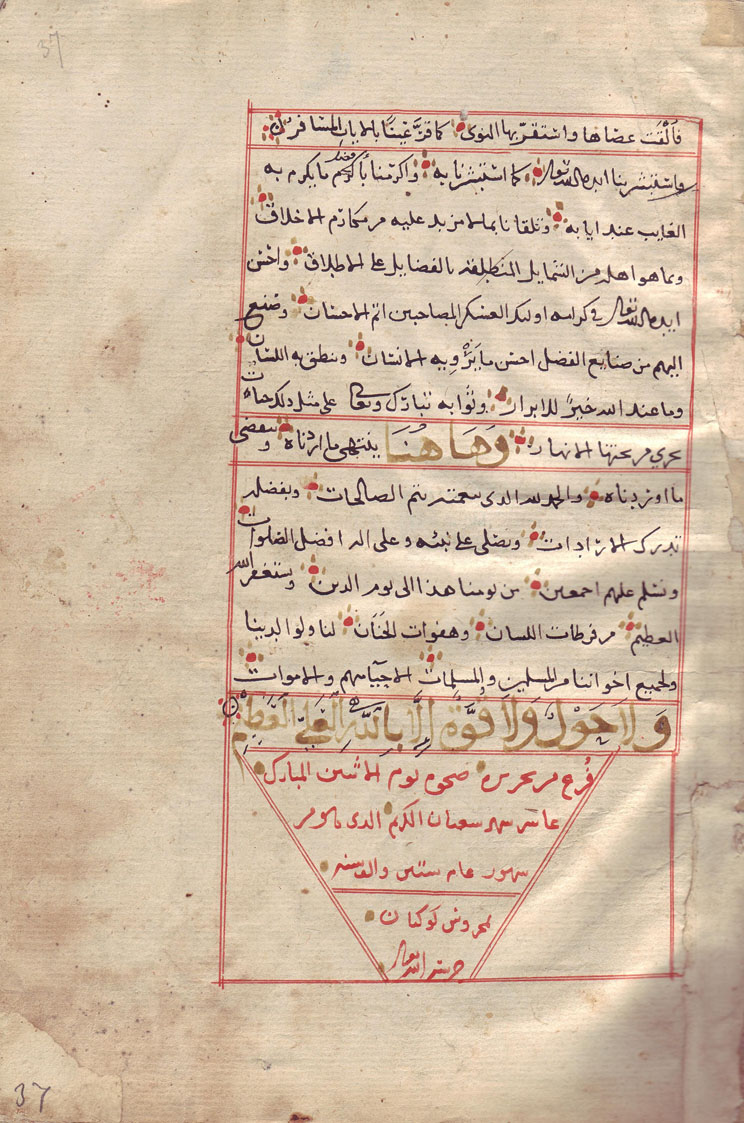 37
فألقت عصاها واستقر بها النوى كما قر عينا بالاياب المسافر
واستبشر بنا ايده الله تعالى كما استبشرنا به واكرمنا بأكرم ما يكرم به
الغايب عند ايابه وتلقانا بما لا مزيد عليه من مكارم الاخلاق
وبما هو اهله من الشمايل المنطلقه بالفضايل على الاطلاق واحسن
ايده الله تعالى في كرامه اوليك العسكر المصاحبين اتم الاحسان وصنع
اليهم من صنايع الفضل احسن ما يرويه الانسان وينطق به اللسان
وما عند الله خير للابرار وثوابه تبارك وتعالى على مثل ذلك جنات
تجري من تحتها الانهار وها هنا ينتهي ما اردناه وينقضي
ما اوردناه والحمد لله الذي بنعمته يتم الصالحات وبفضله
تدرك الارادات ونصلي على نبيه وعلى اله افضل الصلوات
ونسلم عليهم اجمعين من يومنا هذا الى يوم الدين ونستغفر الله
العظيم من فرطات اللسان وهفوات الجنان لنا ولوالدينا
ولجميع اخواننا من المسلمين والمسلمات الاحيا منهم والاموات
ولا حول ولا قوة إلا بالله العلي العظيم
فرغ من تحريره ضحوه يوم الاثنين المبارك
عاشر شهر شعبان الكريم الذي هو من
شهور عام ستين والف سنه
بمحروس كوكبان
حرسه الله تعالى
37